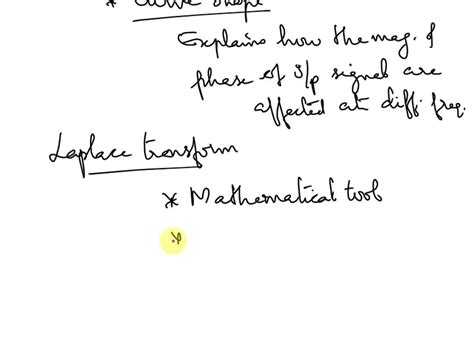 * Curve shape
Explains how the mag. &
phase of i/p signal are
affected at diff. freq.
Laplace transform
* Mathematical tool
*